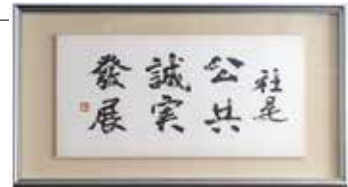 社是
公共
誠実
發展